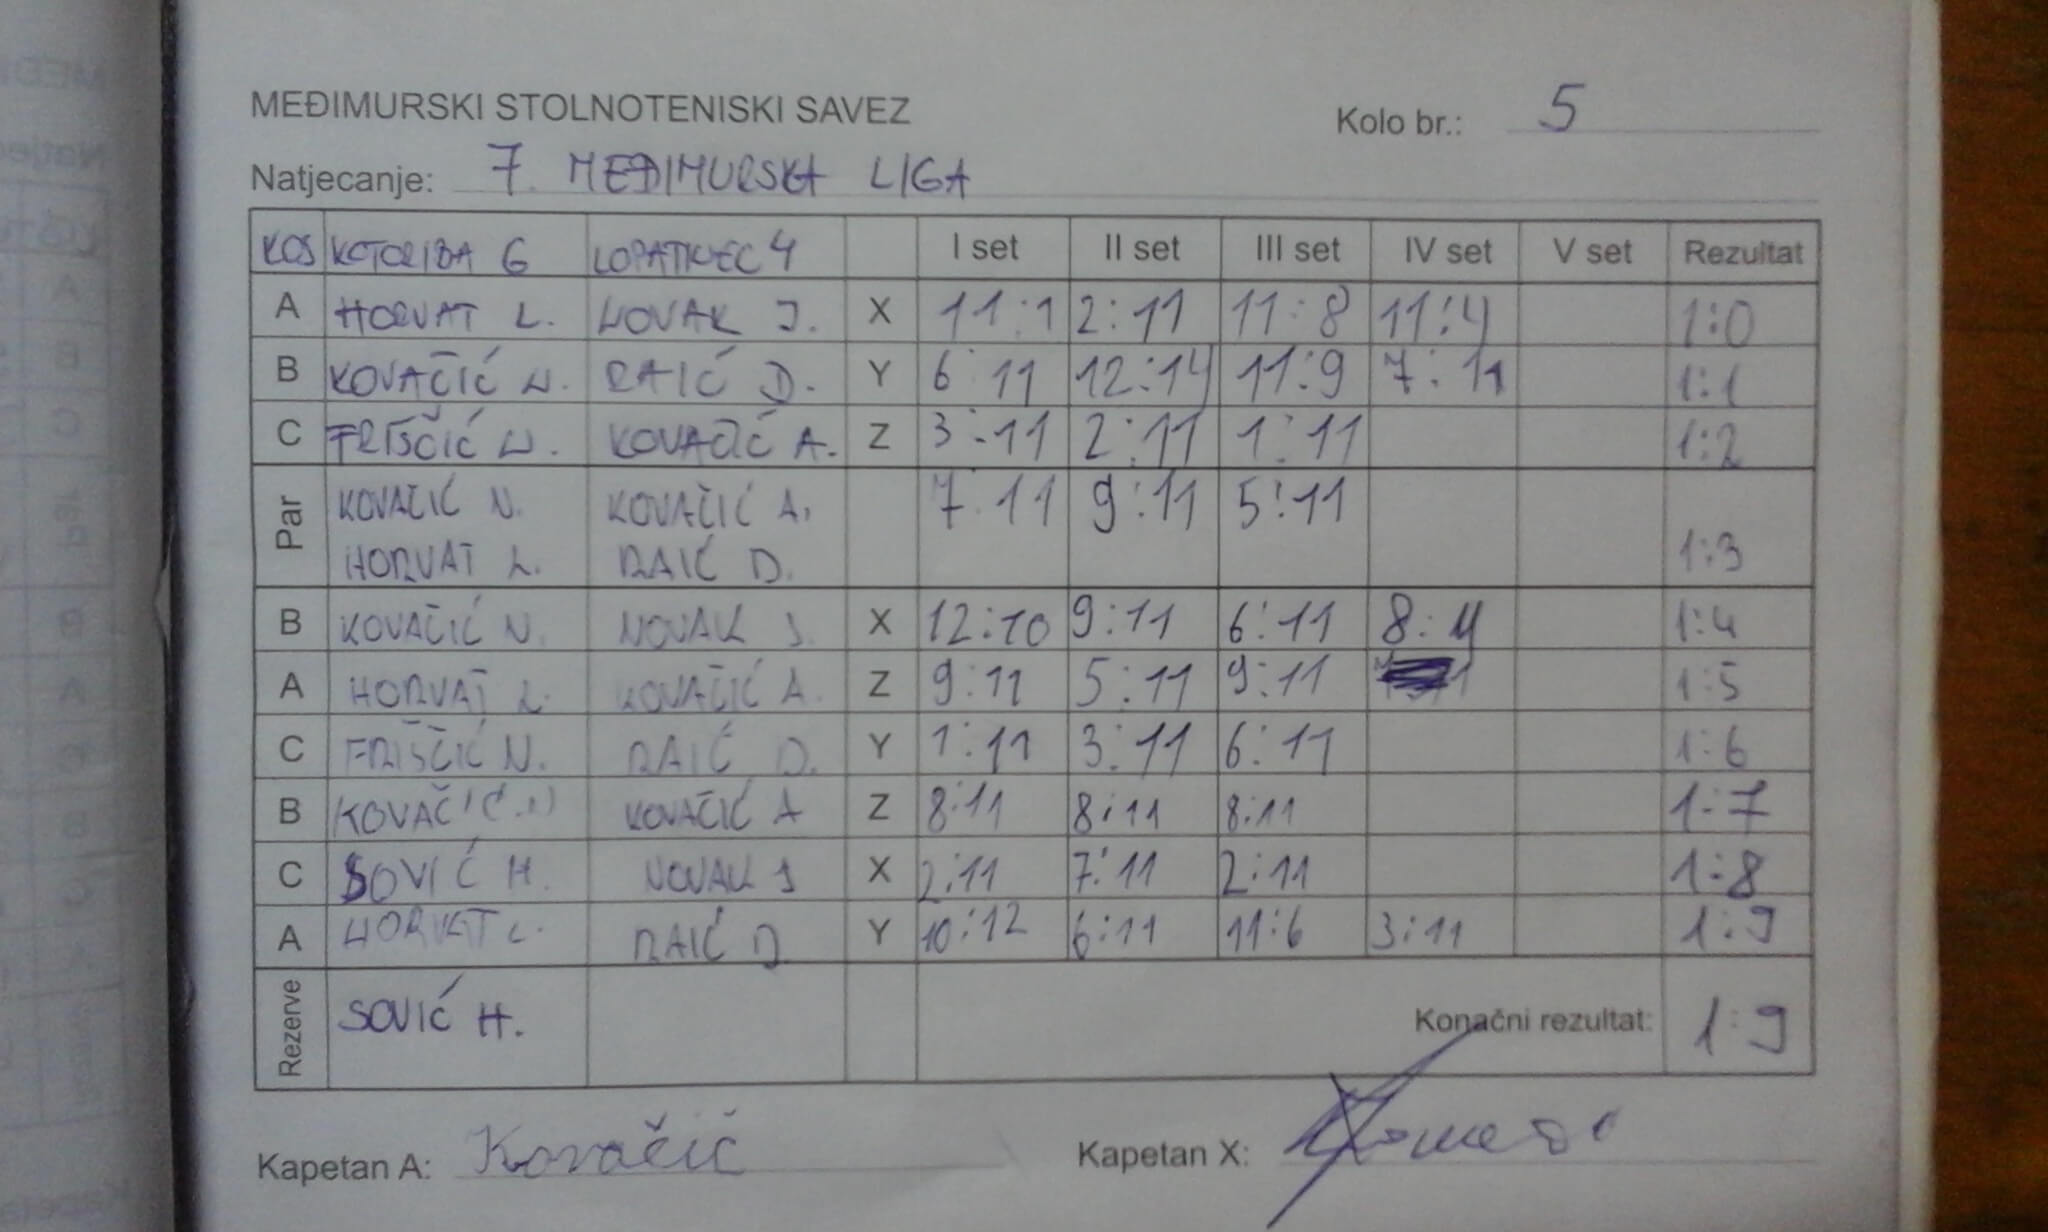 MEĐIMURSKI STOLNOTENISKI SAVEZ Kolo br.: 5
Natjecanje: 7. MEĐIMURSKA LIGA
KOS KOTORIBA 6 LOPATINEC 4 I set II set III set IV set V set Rezultat
A HORVAT L. NOVAK J. X 11:1 2:11 11:8 11:4 1:0
B KOVAČIĆ N. RAIĆ D. Y 6:11 12:14 11:9 7:11 1:1
C FRIŠČIĆ N. KOVAČIĆ A. Z 3:11 2:11 1:11 1:2
Par KOVAČIĆ N. KOVAČIĆ A. 7:11 9:11 5:11
HORVAT L. RAIĆ D. 1:3
B KOVAČIĆ N. NOVAK J. X 12:10 9:11 6:11 8:11 1:4
A HORVAT L. KOVAČIĆ A. Z 9:11 5:11 9:11 1:5
C FRIŠČIĆ N. RAIĆ D. Y 1:11 3:11 6:11 1:6
B KOVAČIĆ N KOVAČIĆ A Z 8:11 8:11 8:11 1:7
C SOVIĆ H. NOVAK J X 2:11 7:11 2:11 1:8
A HORVAT L. RAIĆ D Y 10:12 6:11 11:6 3:11 1:9
Rezerve SOVIĆ H. Konačni rezultat: 1:9
Kapetan A: Kovačić Kapetan X: